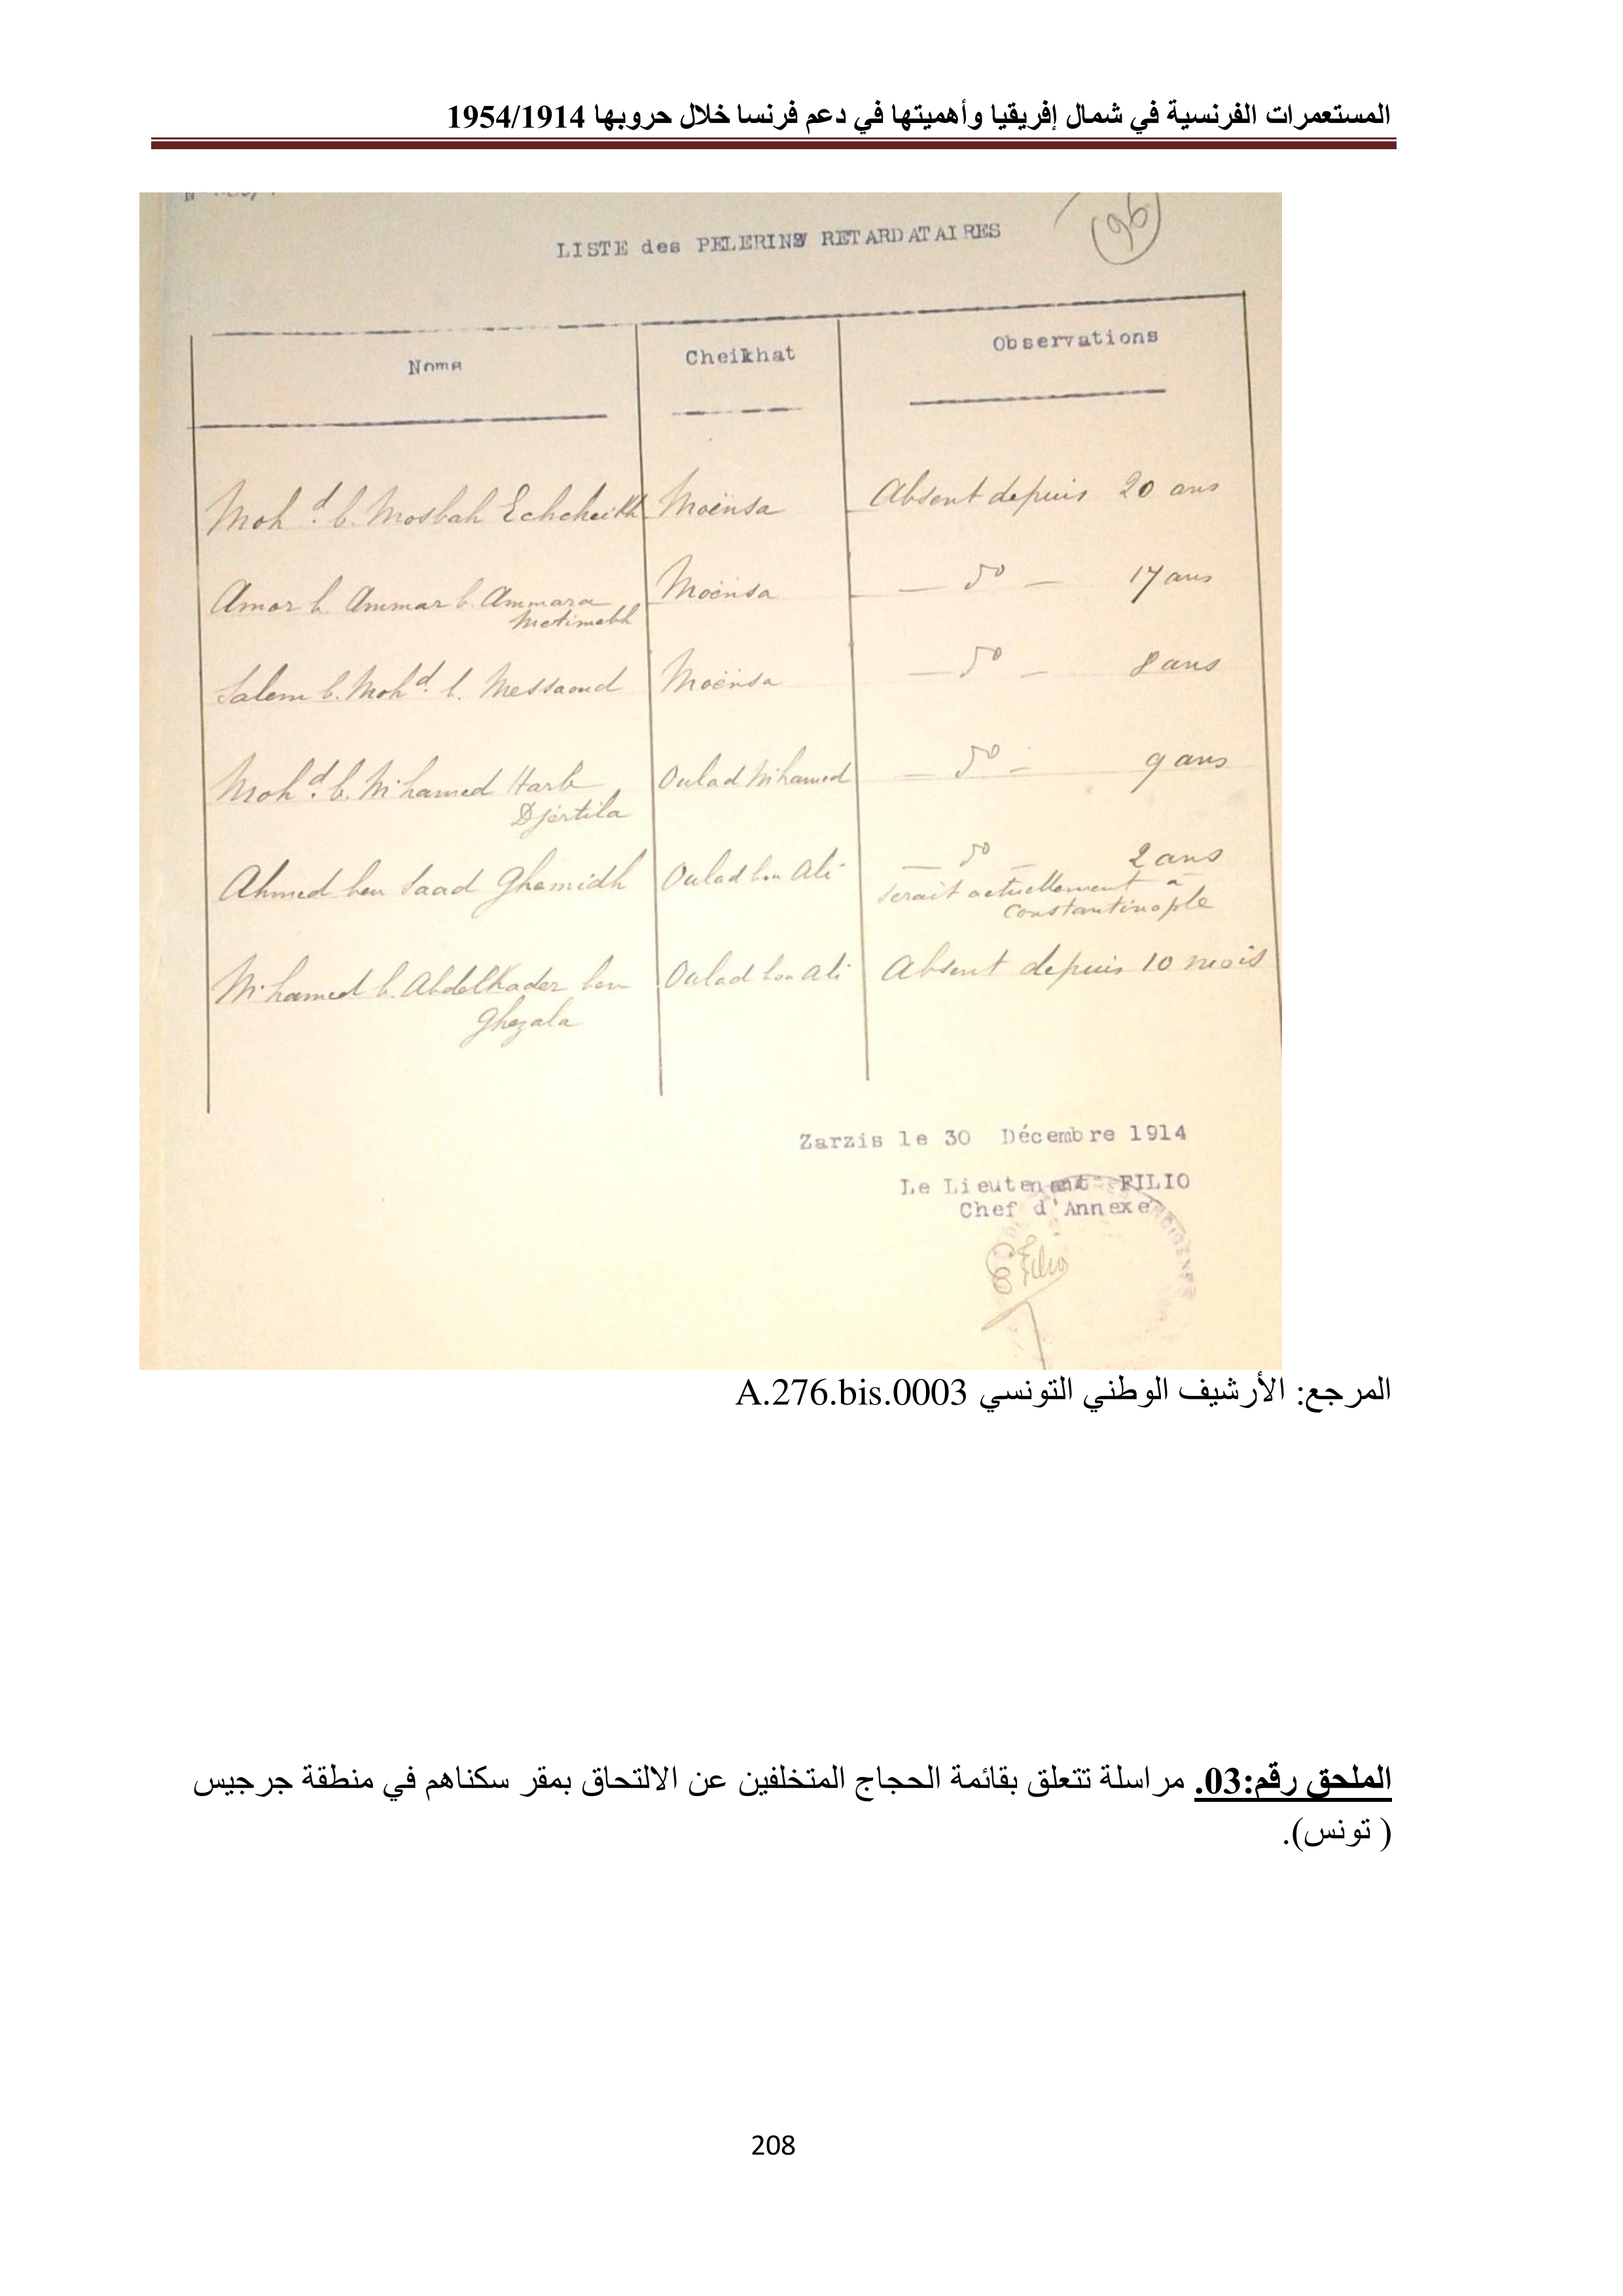 المستعمرات الفرنسية في شمال إفريقيا وأهميتها في دعم فرنسا خلال حروبها 1954/1914
96
LISTE des PELERINS RETARDATAIRES
Noms Cheikhat Observations
Moh.d b. Mosbah Echcheikh Moënsa Absent depuis 20 ans
Amor b. Ammar b. Ammara Moënsa — do — 17 ans
Salem b. Moh.d b. Messaoud Moënsa — do — 8 ans
Moh.d b. M'hamed Harb Oulad M'hamed — do — 9 ans
Djertila
Ahmed ben Saad Ghamidh Oulad bou Ali — do — 2 ans
serait actuellement à
Constantinople
M'hamed b. Abdelkader ben Oulad bou Ali Absent depuis 10 mois
Ghezala
Zarzis le 30 Décembre 1914
Le Lieutenant FILIO
Chef d'Annexe
Filio
المرجع: الأرشيف الوطني التونسي A.276.bis.0003
الملحق رقم:03. مراسلة تتعلق بقائمة الحجاج المتخلفين عن الالتحاق بمقر سكناهم في منطقة جرجيس
( تونس).
208